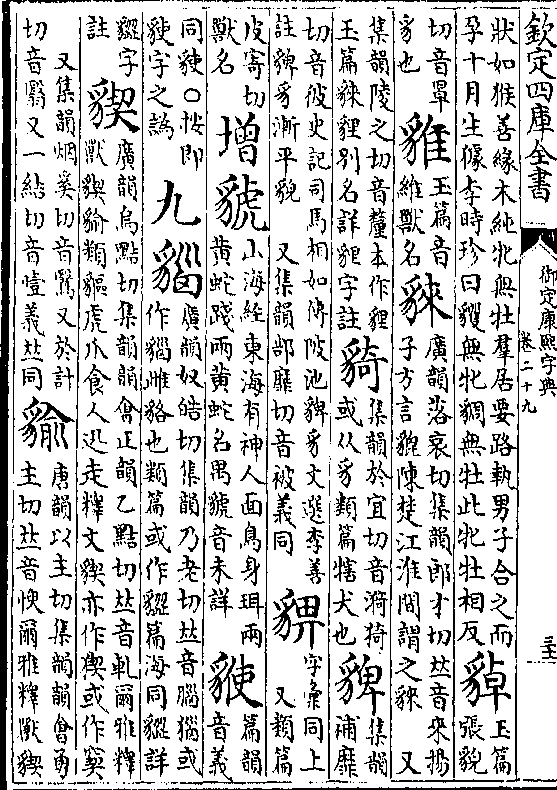 欽定四庫全書
御定康熙字典
卷二十九
狀如猴善緣木純牝無牡羣居要路執男子合之而
孕十月生據李時珍曰玃無牝無牡此牝牡相反
玉篇張貌
切音罩
豸也
玉篇音
維獸名
廣韻落哀切集韻郎才切𠀤音來揚
子方言貔陳楚江淮閒謂之 又
集韻陵之切音釐本作貍
玉篇貍別名詳貍字註
集韻於宜切音漪猗
或从豸類篇犗犬也
貏
集韻
補靡
切音彼史記司馬相如傳陂池貏豸文選李善
註貏豸漸平貌 又集韻部靡切音被義同
字彙同上
又類篇
皮寄切
獸名
增
䝞
山海經東海有神人面鳥身珥兩
黃蛇踐兩黃蛇名禺䝞音未詳
篇韻
音義
同○按即
字之譌
九
廣韻奴皓切集韻乃老切𠀤音腦獿或
作雌貉也類篇或作篇海同詳
字
註
䝟
廣韻烏黠切集韻韻會正韻乙黠切𠀤音軋爾雅釋
獸䝟貐類貙虎爪食人迅走釋文䝟亦作猰或作窫
又集韻烟奚切音鷖又於計
切音翳又一結切音噎義𠀤同
貐
唐韻以主切集韻韻會勇
主切𠀤音愈爾雅釋獸䝟